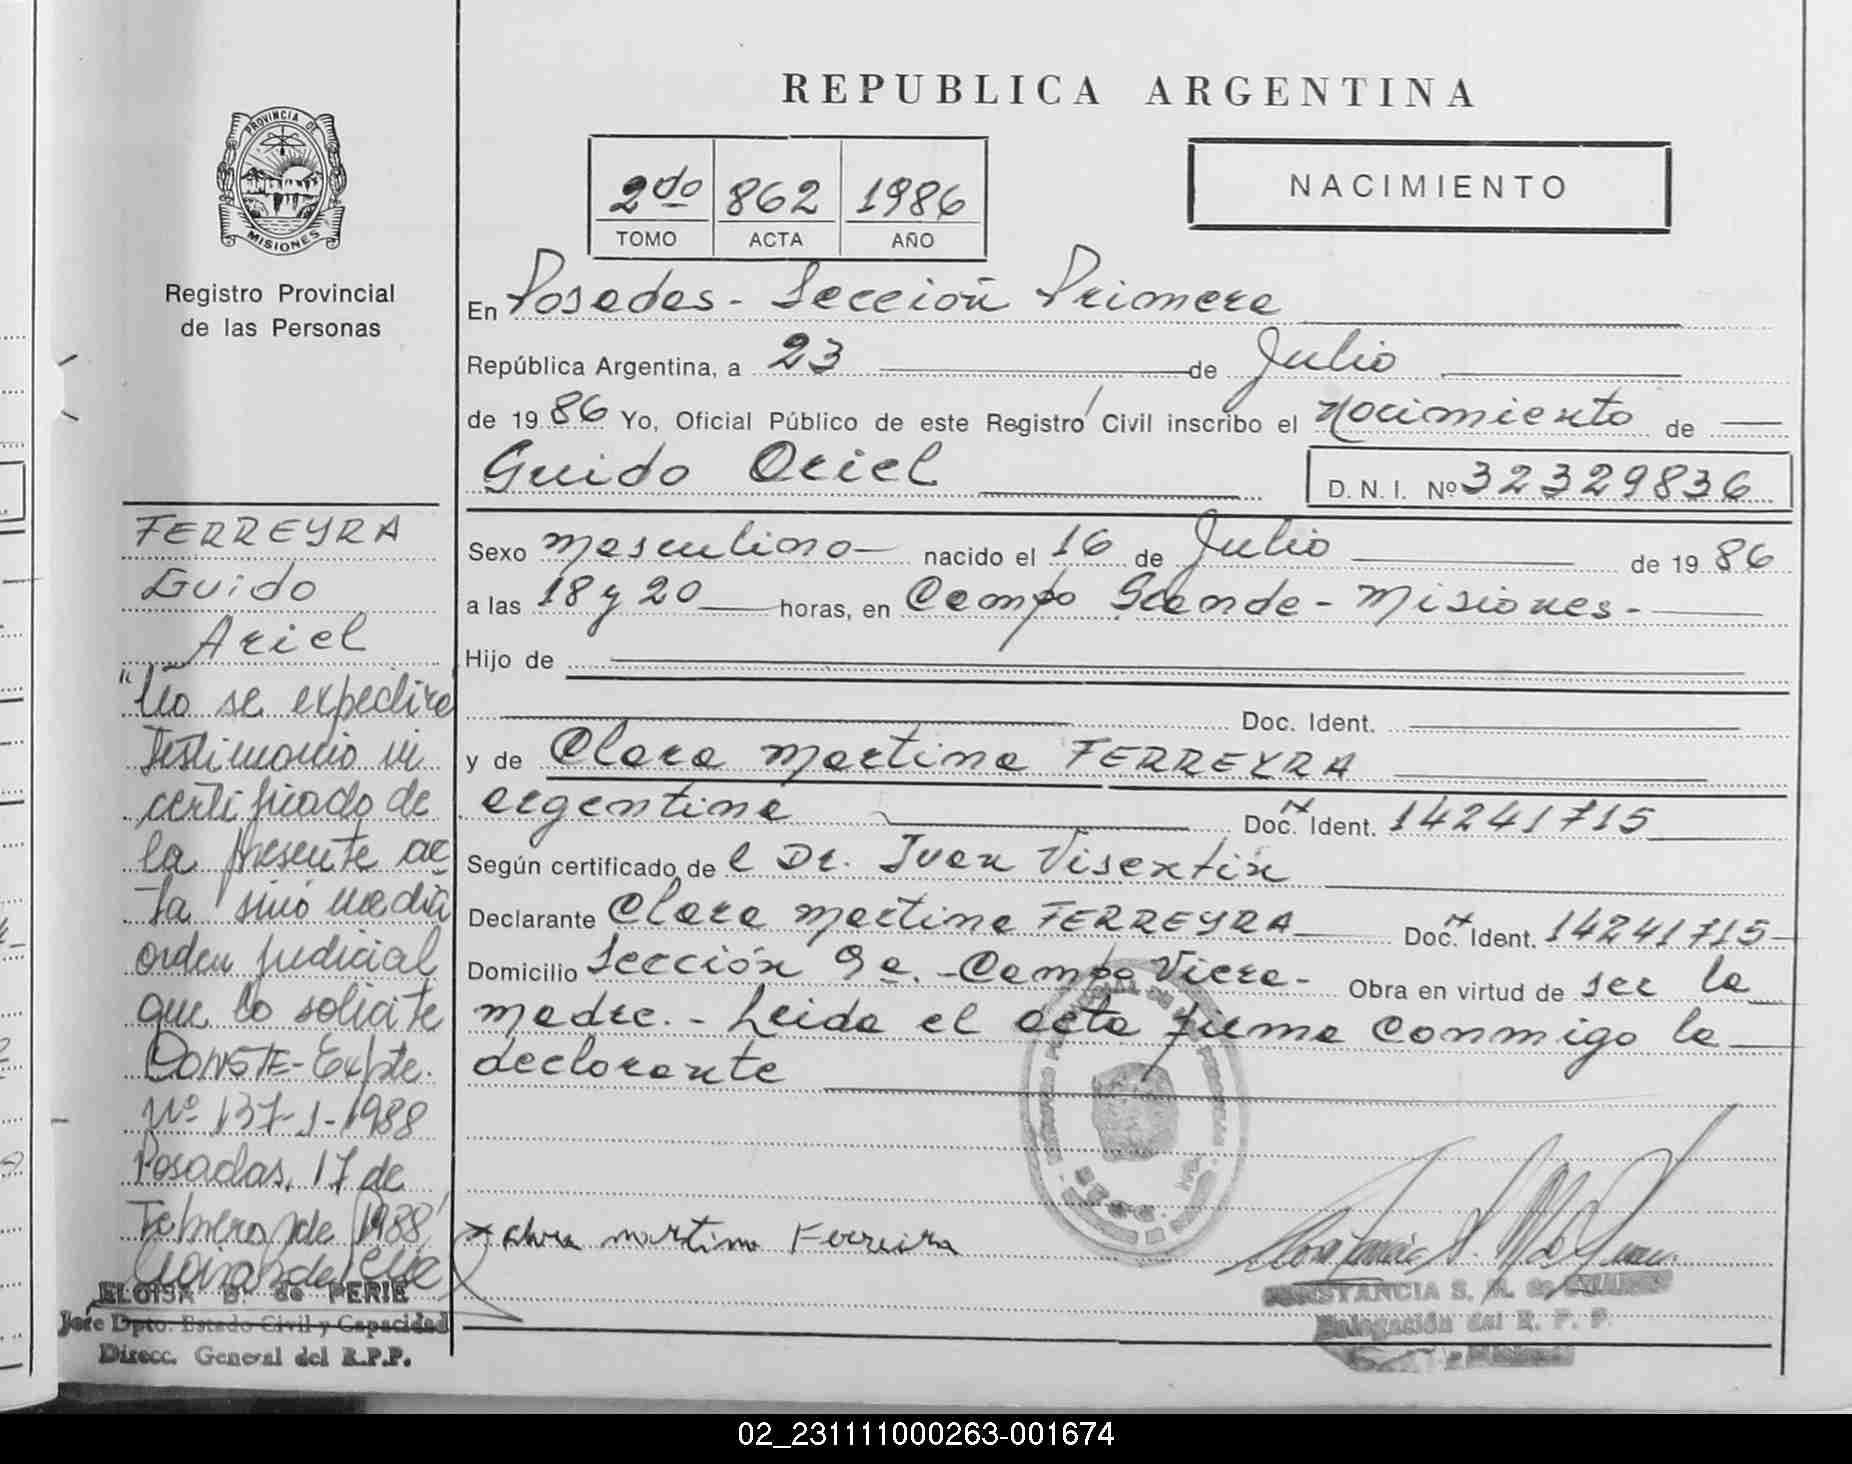 REPUBLICA ARGENTINA
PROVINCIA DE
MISIONES
Registro Provincial
de las Personas
2do 862 1986
TOMO ACTA AÑO
NACIMIENTO
En Posadas - Sección Primera
República Argentina, a 23 de Julio
de 1986 Yo, Oficial Público de este Registro Civil inscribo el Nacimiento de
Guido Ariel
D. N. I. Nº 32329836
Sexo masculino nacido el 16 de Julio de 1986
a las 18 y 20 horas, en Campo Grande - Misiones -
Hijo de
Doc. Ident.
y de Clara Martina FERREYRA
argentina Doc. Ident. 14241715
Según certificado de l Dr. Juan Visentin
Declarante Clara Martina FERREYRA Doc. Ident. 14241715
Domicilio Sección 9a. - Campo Viera - Obra en virtud de ser la
madre. - Leida el acta firma conmigo la
declarante
x Clara martina Ferreira
CONSTANCIA S. M. de
Delegación del R. P. P.
FERREYRA
Guido
Ariel
"No se expedira
testimonio ni
certificado de
la presente ac
ta sinó media
orden judicial
que lo solicite
CONSTE - Expte.
Nº 137-J-1988
Posadas, 17 de
Febrero de 1988
ELOISA B. de PERIE
Jefe Dpto. Estado Civil y Capacidad
Direcc. General del R.P.P.
02_231111000263-001674